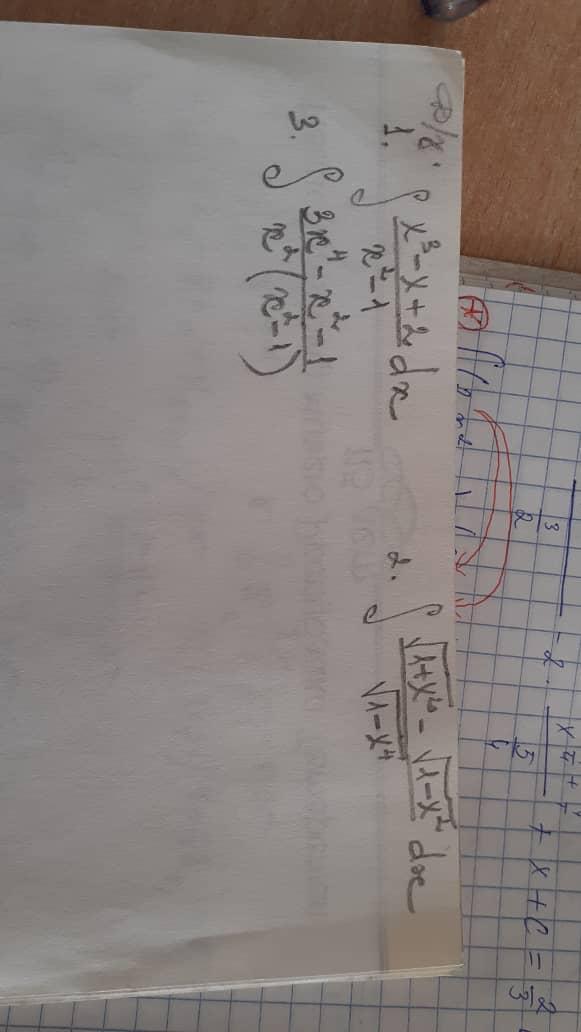 D/z.
1. ∫ (x³ - x + 2)/(x² - 1) dx 2. ∫ (√(1+x²) - √(1-x²))/√(1-x⁴) dx
3. ∫ (3x⁴ - x² - 1)/(x²(x² - 1))
3/2 - 2 · 5/4 + x + C = 2/3